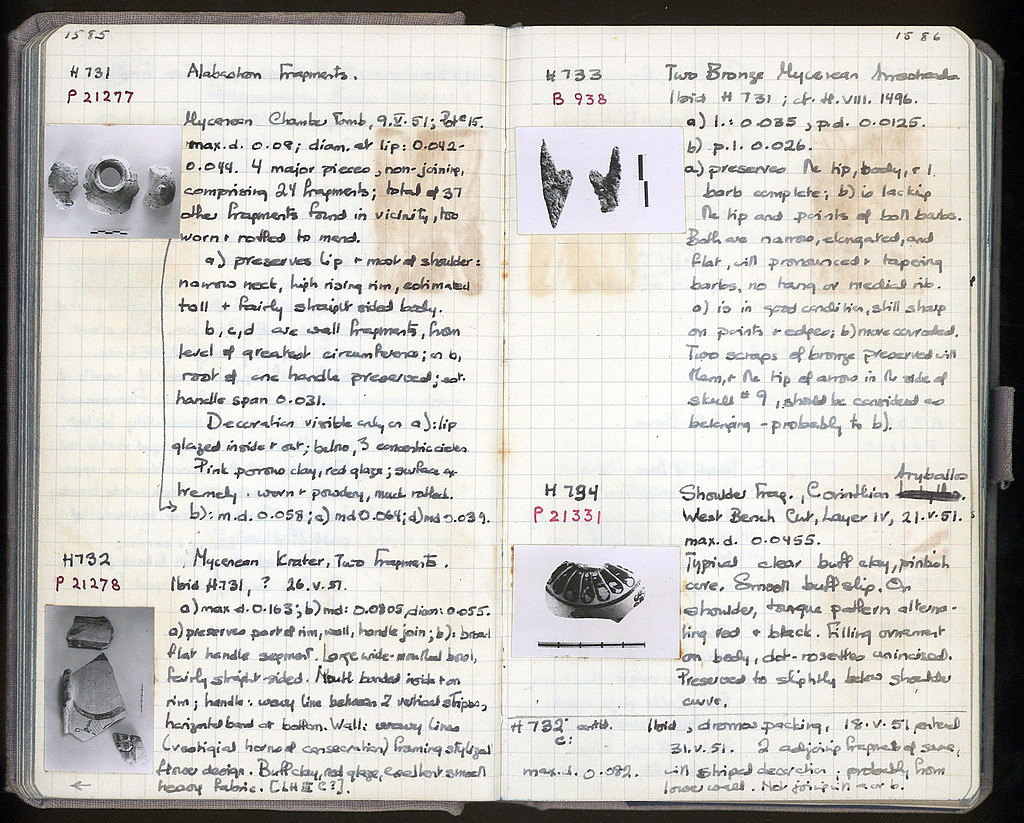 1585
H 731
Alabastron Fragments.
P 21277
Mycenean Chamber Tomb, 9.V.51; Pot # 15.
max. d. 0.08; diam. at lip: 0.042-
0.044. 4 major pieces, non-joining,
comprising 24 fragments; total of 37
other fragments found in vicinity, too
worn + rotted to mend.
a) preserves lip + most of shoulder:
narrow neck, high rising rim, estimated
tall + fairly straight sided body.
b, c, d are wall fragments, from
level of greatest circumference; on b,
root of one handle preserved; est.
handle span 0.031.
Decoration visible only on a): lip
glazed inside + out; below, 3 concentric circles.
Pink porous clay, red glaze; surface ex-
tremely worn + powdery, much rotted.
b): m.d. 0.058; c) md 0.064; d) md 0.039.
H 732
Mycenean Krater, Two Fragments.
P 21278
Ibid H 731, ? 26.V.51.
a) max d. 0.163; b) md: 0.0805, diam: 0.055.
a) preserves part of rim, wall, handle join; b): broad
flat handle segment. Large wide-mouthed bowl,
fairly straight-sided. Mouth banded inside + on
rim; handle: wavy line between 2 vertical stripes,
horizontal band at bottom. Wall: wavy lines
(vestigial horns of consecration) framing stylized
flower design. Buff clay, red glaze, excellent smooth
heavy fabric. [LH III C?].
←
1586
H 733
Two Bronze Mycenean Arrowheads
B 938
Ibid H 731; cf. H.VIII. 1496.
a) l.: 0.035, p.d. 0.0125.
b) p.l. 0.026.
a) preserves the tip, body, + 1
barb complete; b) is lacking
the tip and points of both barbs.
Both are narrow, elongated, and
flat, with pronounced + tapering
barbs, no tang or medial rib.
a) is in good condition, still sharp
on points + edges; b) more corroded.
Two scraps of bronze preserved with
them, + the tip of arrow in the side of
skull # 9, should be considered as
belonging - probably to b).
H 734
Aryballos
Shoulder Frag., Corinthian
P 21331
West Bench Cut, Layer IV, 21.V.51.
max. d. 0.0455.
Typical clear buff clay, pinkish
core. Smooth buff slip. On
shoulder, tongue pattern alterna-
ting red + black. Filling ornament
on body, dot-rosettes unincised.
Preserved to slightly below shoulder
curve.
H 732 contd.
c:
Ibid, dromos packing, 18.V.51, entered
31.V.51. 2 adjoining fragments of same,
max. d. 0.082.
with striped decoration; probably from
lower wall. Not joining a or b.